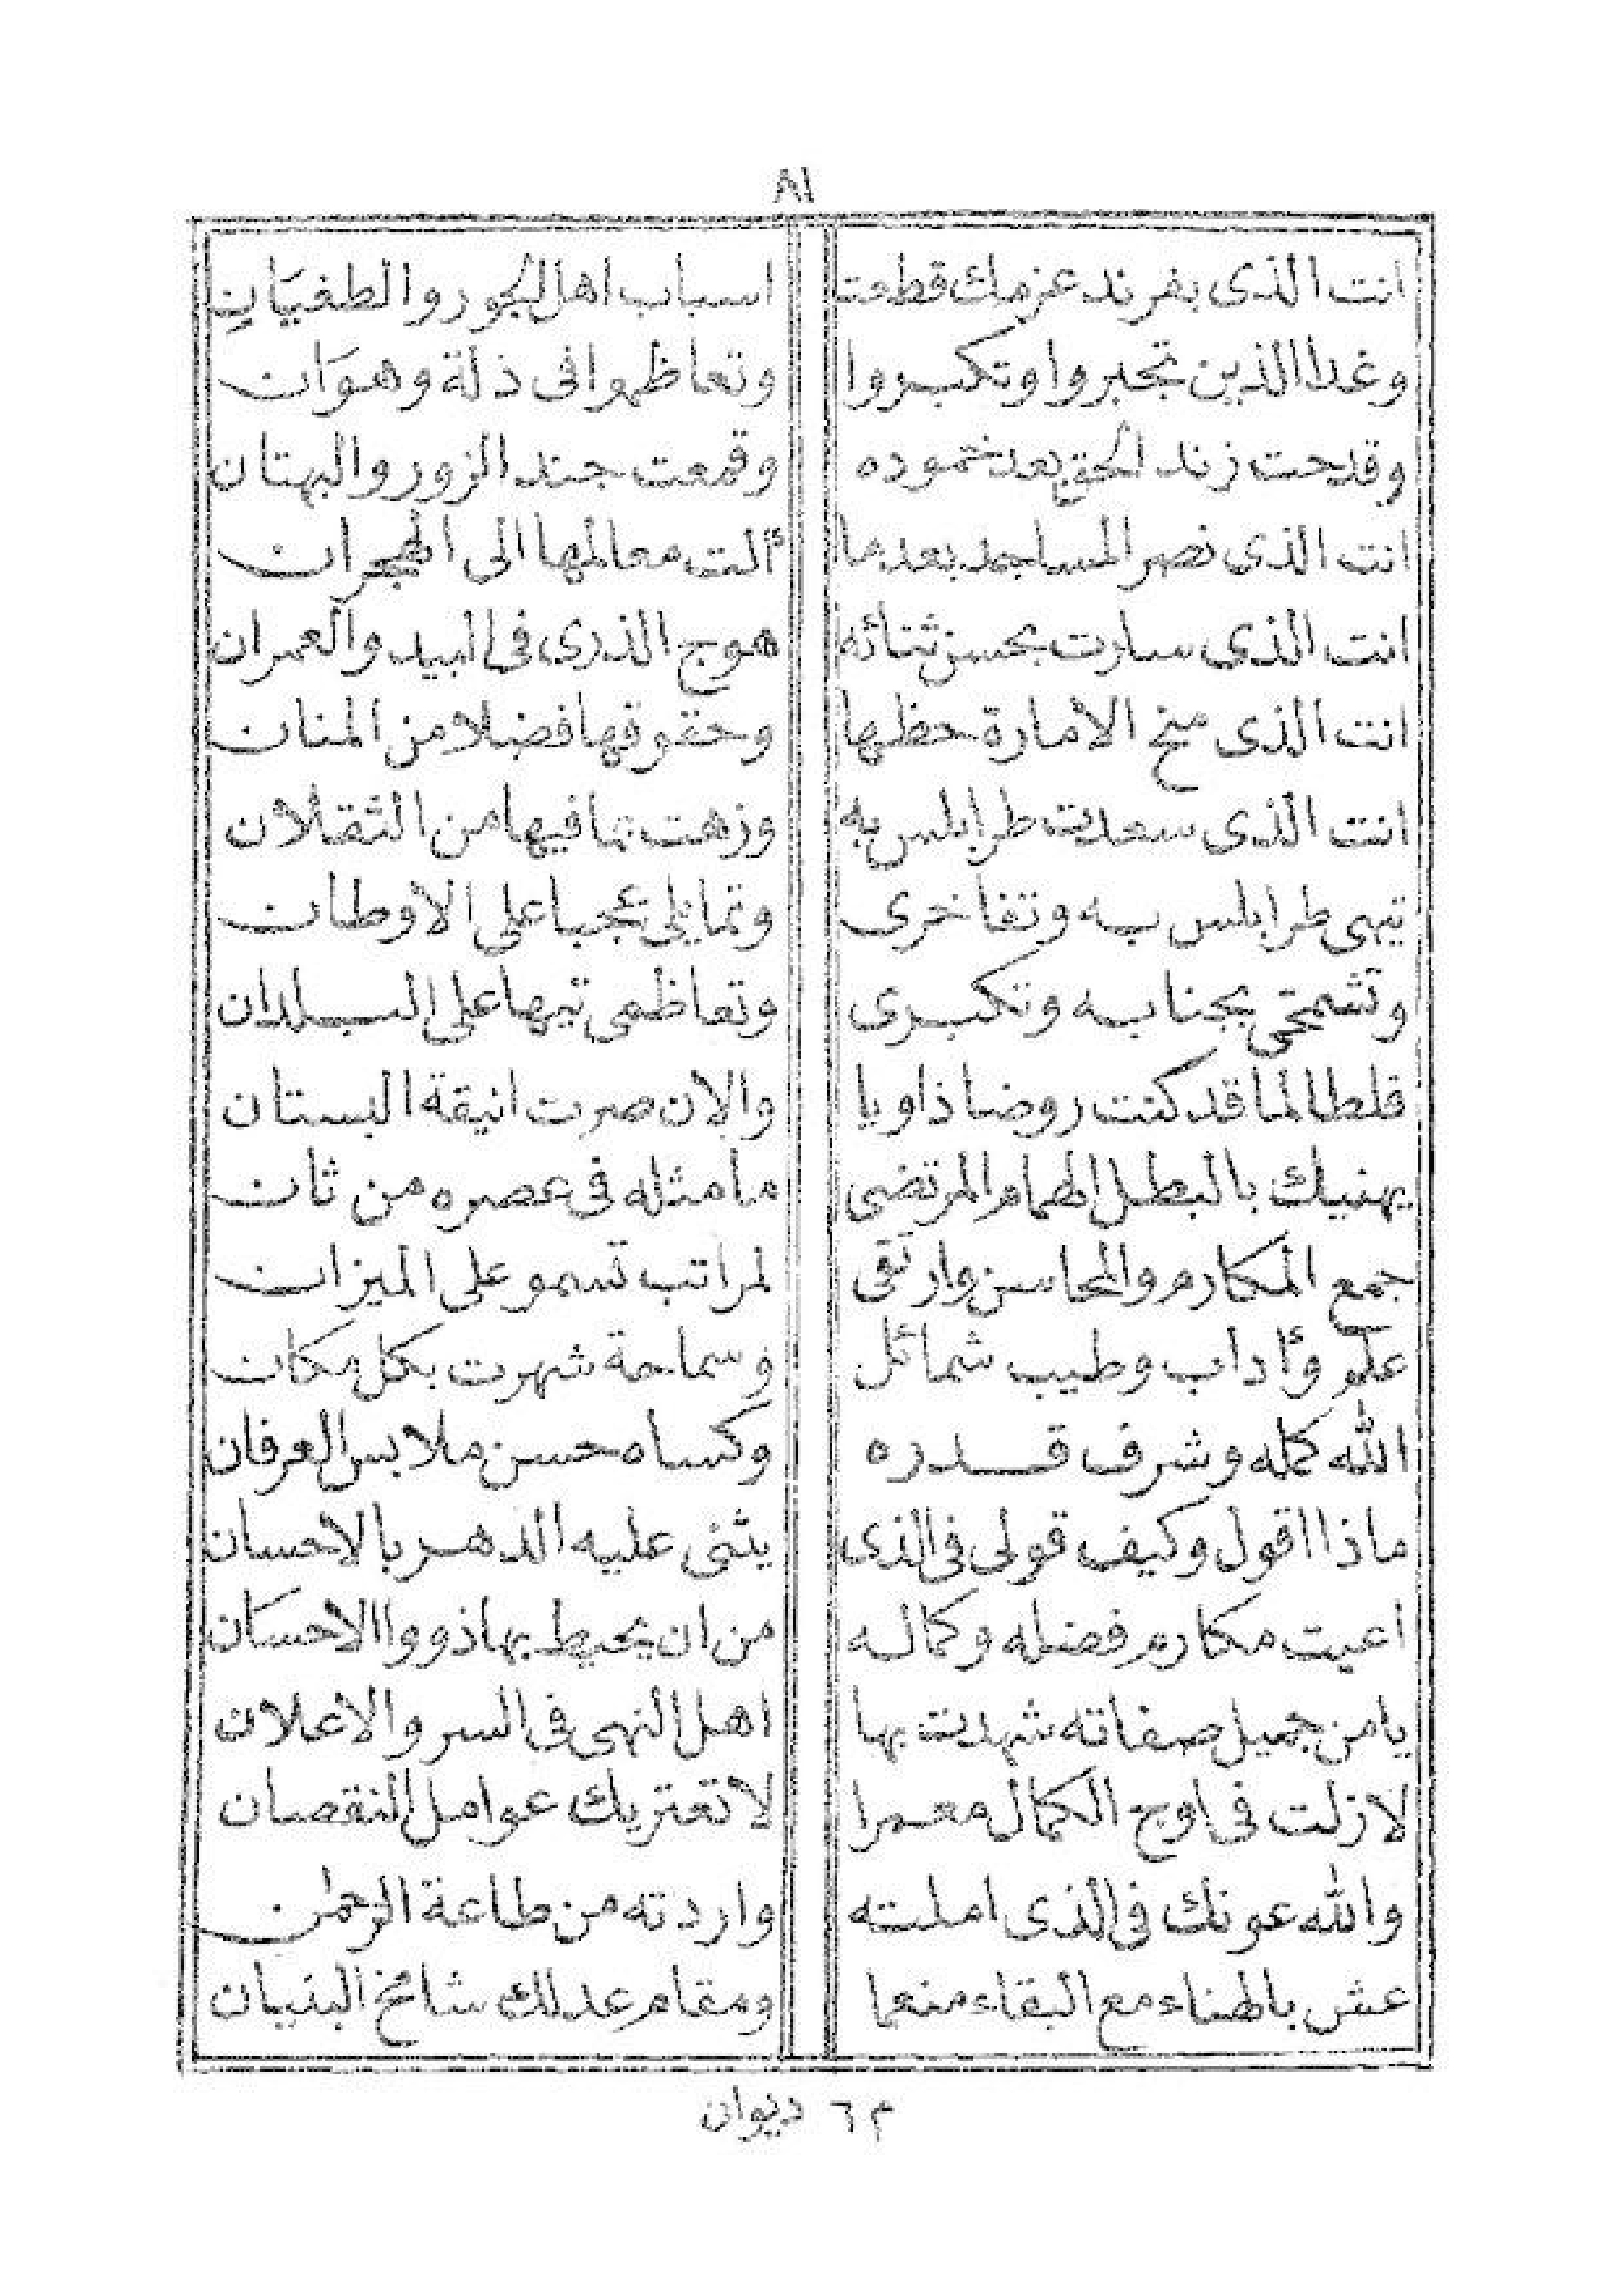 ٨١
انت الذى بفرند عزمك قطعت اسباب اهل الجور والطغيَانِ
وغدا الذين تجبروا وتكبروا وتعاظموا فى ذلة وهوَان
وقدحت زند الحق بعد خموده وقمعت جند الزور والبهتان
انت الذى نصر المساجد بعد ما ألت معالمها الى الهجران
انت الذى سارت بحسن ثنائه هوج الذرى فى البيد والعمران
انت الذى منح الامارة حظها وحقوقها فضلا من المنان
انت الذى سعدت طرابلس به وزهت بما فيها من الثقلان
تيهى طرابلس به وتفاخرى وتمايلى عجبا على الاوطان
وتشمخى بجنابه وتكبرى وتعاظمى تيها على البلدان
فلطالما قد كنت روضا ذاويا والان صرت انيقة البستان
يهنيك بالبطل الهمام المرتضى ما مثله فى عصره من ثان
جمع المكارم والمحاسن وارتقى لمراتب تسمو على الميزان
علم وأداب وطيب شمائل وسماحة شهرت بكل مكان
الله كمله وشرف قدره وكساه حسن ملابس العرفان
ماذا اقول وكيف قولى فى الذى يثنى عليه الدهر بالاحسان
اعيت مكارم فضله وكماله من ان يحيط بها ذووا الاحسَان
يامن جميل صفاته شهدت بها اهل النهى فى السر والاعلان
لازلت فى اوج الكمال معمرا لاتعتريك عوامل النقصان
والله عونك فى الذى املته واردته من طاعة الرحمٰن
عش بالهناء مع البقاء منعما ومقام عدلك شامخ البنيان
م ٦ ديوان